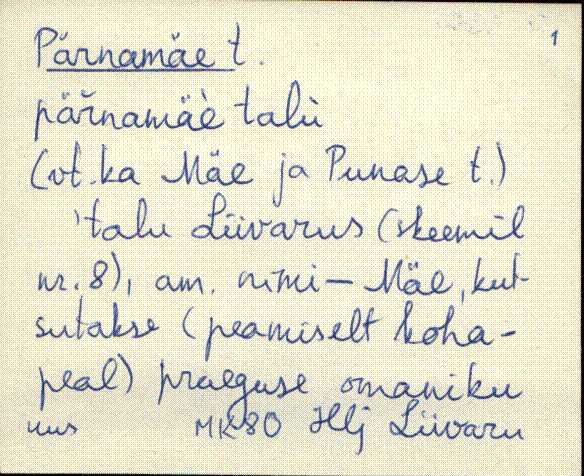 1
Pärnamäe t.
pär̆namäè talù
(vt. ka Mäe ja Punase t.)
'talu Liivarus (skeemil
nr. 8), am. nimi – Mäe, kut-
sutakse (peamiselt koha-
peal) praeguse omaniku
uus MK80 Hlj Liivaru